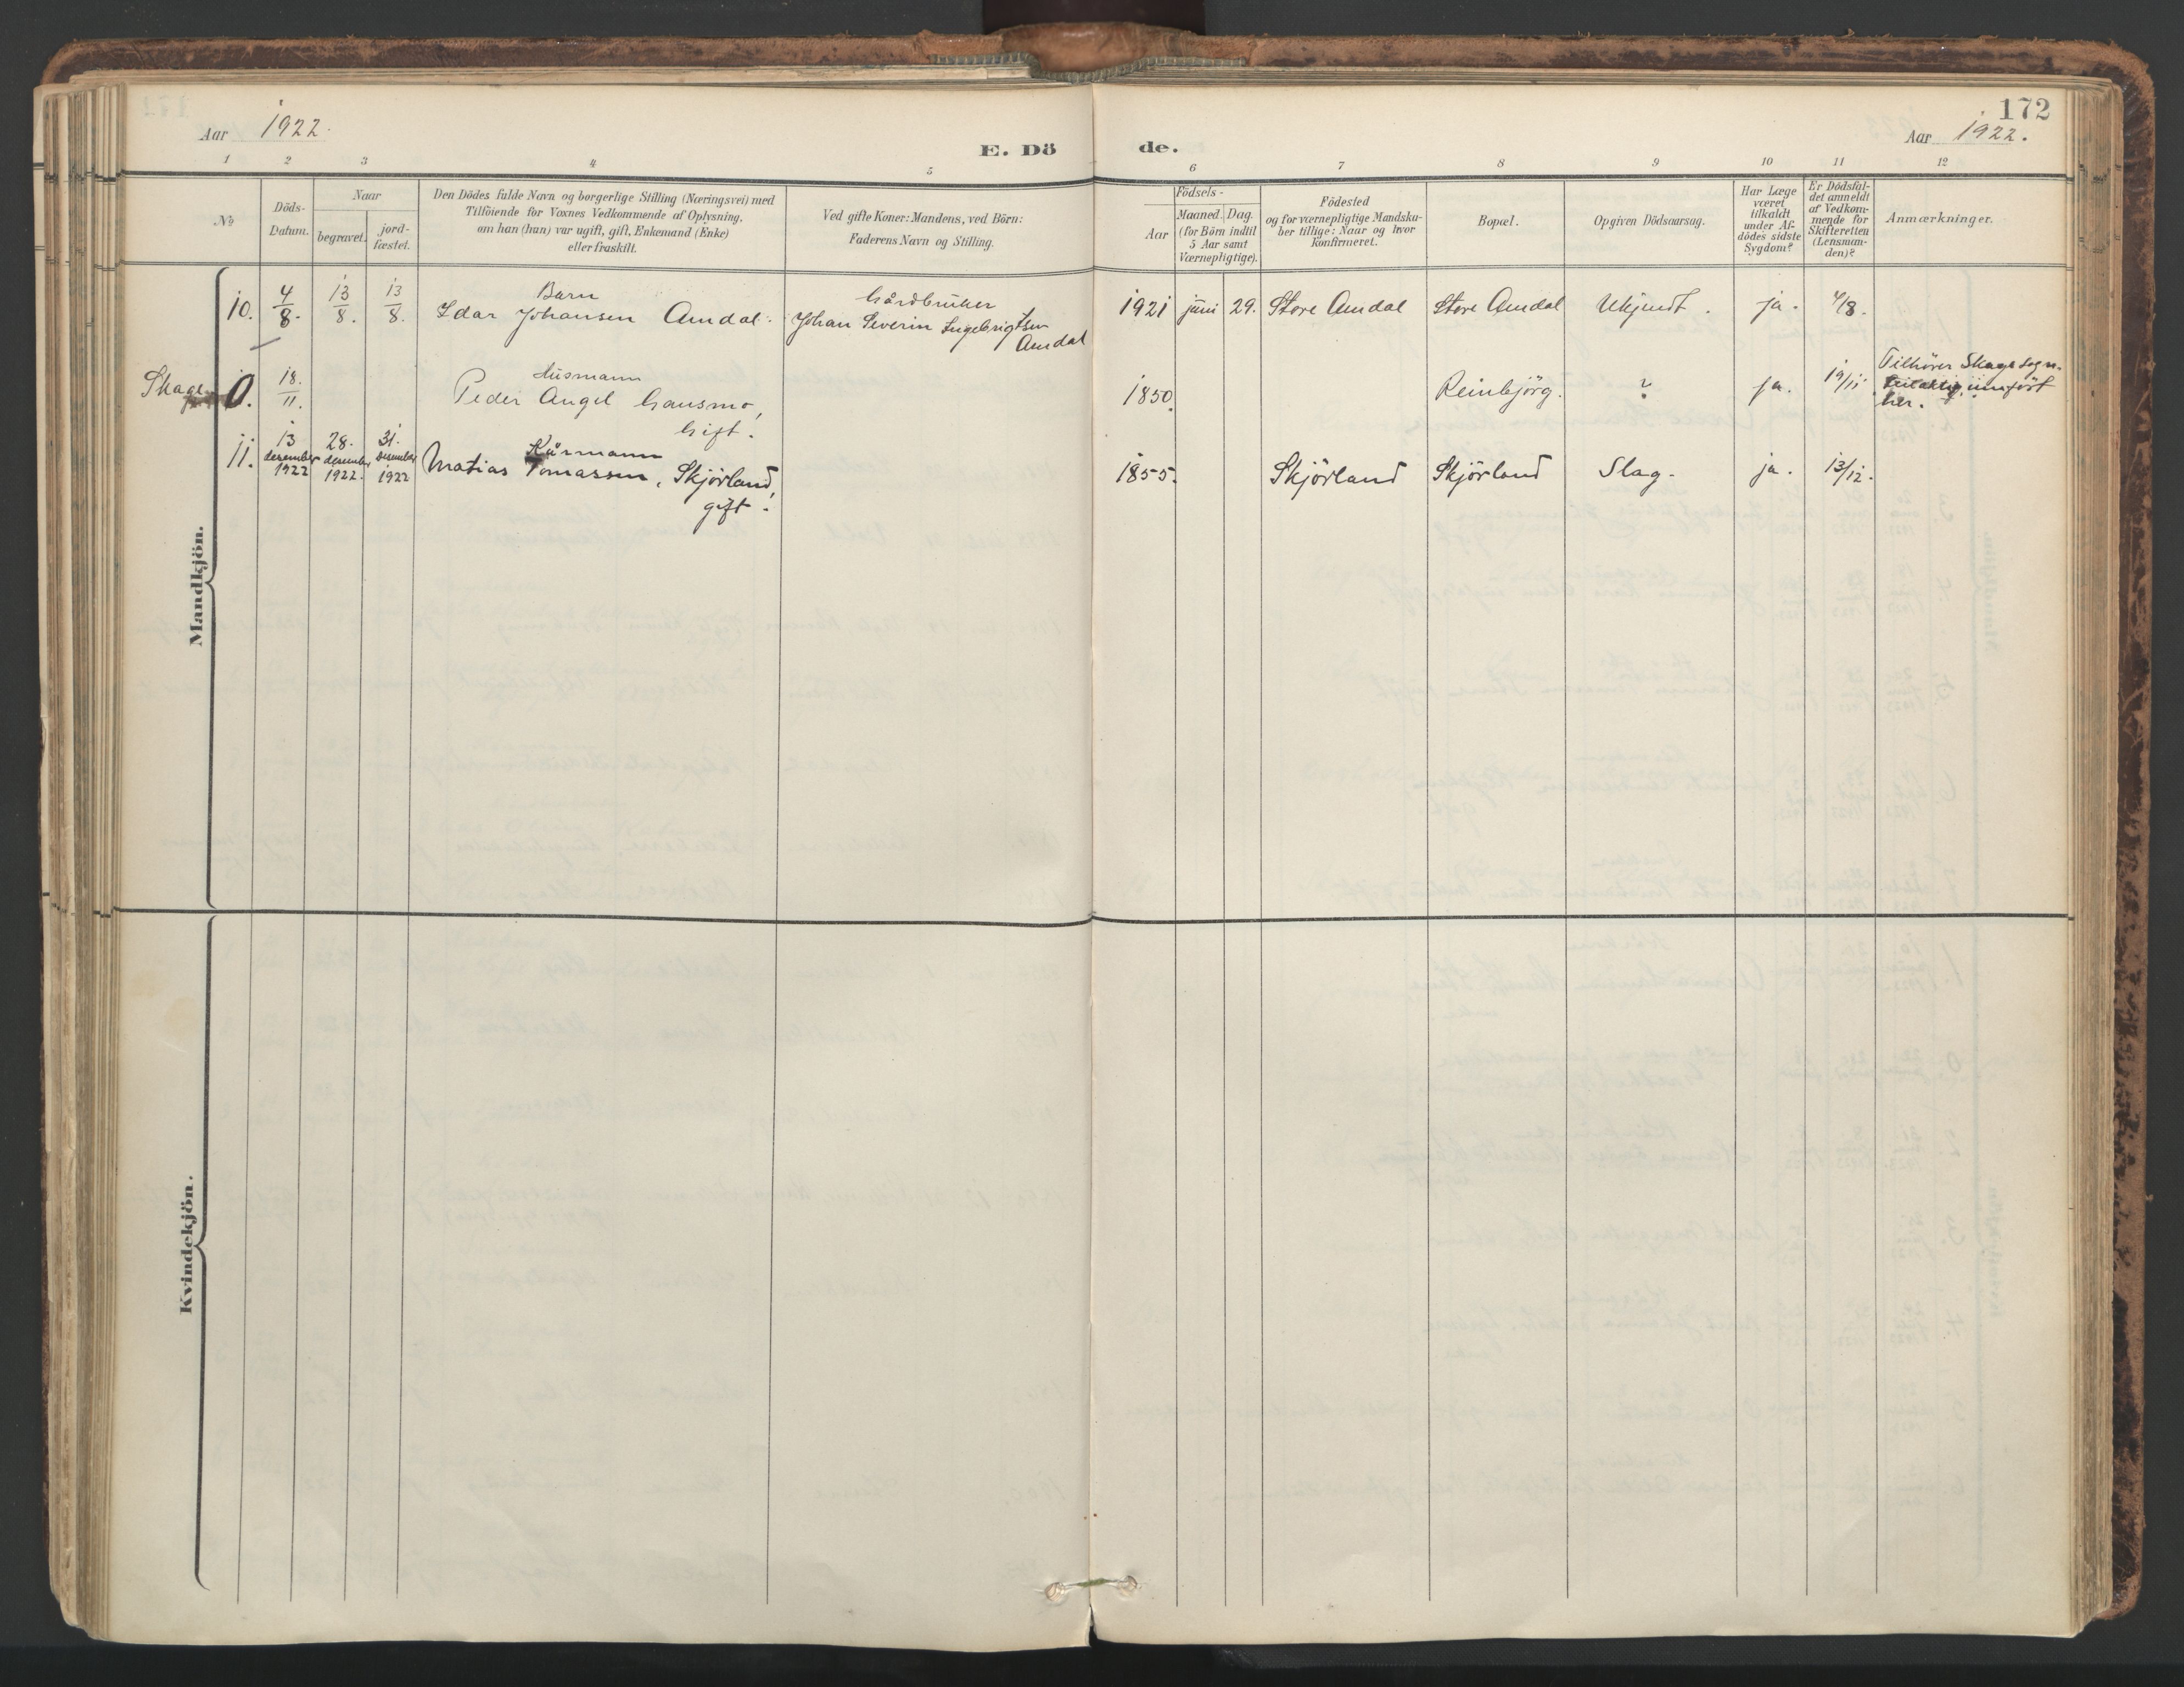 172
Aar 1922.
E. Dö
de.
Aar 1922.
1 2 3 4 5 6 7 8 9 10 11 12
No
Döds-
Datum.
Naar
begravet.
jord-
fæstet.
Den Dödes fulde Navn og borgerlige Stilling (Næringsvei) med
Tilföiende for Voxnes Vedkommende af Oplysning,
om han (hun) var ugift, gift, Enkemand (Enke)
eller fraskilt.
Ved gifte Koner: Mandens, ved Börn:
Faderens Navn og Stilling.
Födsels-
Aar
Maaned. Dag.
(for Börn indtil
5 Aar samt
Værnepligtige).
Födested
og for værnepligtige Mandsku-
ber tillige: Naar og hvor
Konfirmeret.
Bopæl.
Opgiven Dödsaarsag.
Har Læge
været
tilkaldt
under Af-
dödes sidste
Sygdom?
Er Dödsfal-
det anmeldt
af Vedkom-
mende for
Skifteretten
(Lensman-
den)?
Anmærkninger.
Mandkjön.
10. 4/8. 13/8. 13/8.
Barn
Idar Johansen Amdal.
Gårdbruker
Johan Severin Ingebrigtsen
Amdal
1921 juni 29. Store Amdal Store Amdal Ukjendt. ja. 4/8.
Skage
0. 18/11.
Husmann
Peder Angel Gansmo,
Gift.
1850. Reinbjörg. ? ja. 19/11
Tilhörer Skage sogn.
innfört
her.
11. 13 desember 1922 28. desember 1922. 31. desember 1922
Kårmann
Matias Tomassen, Skjörland,
gift.
1855. Skjörland Skjörland Slag. ja. 13/12.
Kvindekjön.